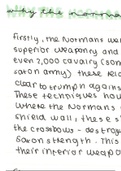 why the norman
Firstly, the Normans wer
superior weaponry and
Even 2,000 cavalry (som
saxon army) these
clear to trump agains
These techniques hav
Where the Normans
shield wall, these s
the crossbows - destro
saxon strength. This
their inferior weapo